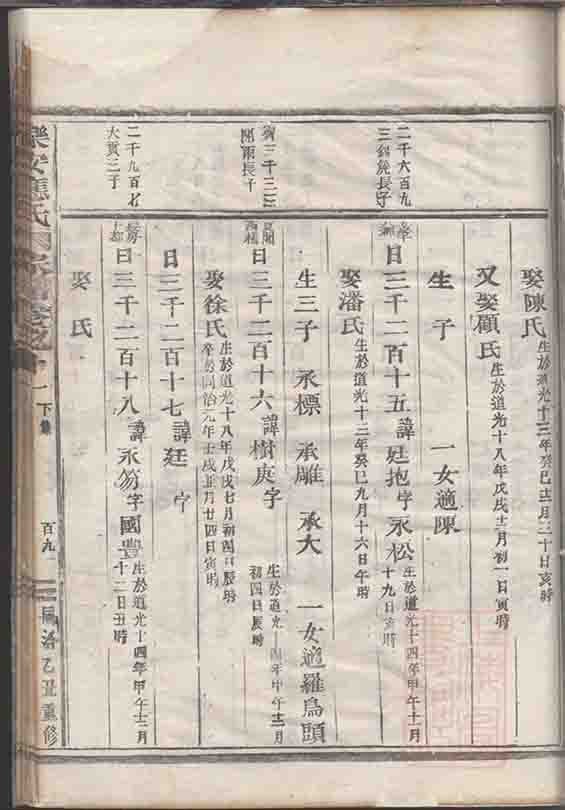 娶陳氏 生於道光十三年癸巳十二月三十日亥時
又娶顧氏 生於道光十八年戊戌十二月初一日寅時
生 子 一女適陳
二千六百九
長子
日三千二百十五 諱廷抱 字永松 生於道光十四年甲午十一月
十九日寅時
娶潘氏 生於道光十三年癸巳九月十六日午時
生三子 承標 承雕 承大 一女適羅鳥頭
長子
日三千二百十六 諱樹庚 字 生於道光十四年甲午十二月
初四日辰時
娶徐氏 生於道光十八年戊戌七月初四日辰時
卒於同治元年壬戌正月廿四日寅時
日三千二百十七 諱廷 字
二千九百七
大貫三子
日三千二百十八 諱永芴 字國豐 生於道光十四年甲午十二月
十二日丑時
娶 氏
下集
百九
同治乙丑重修